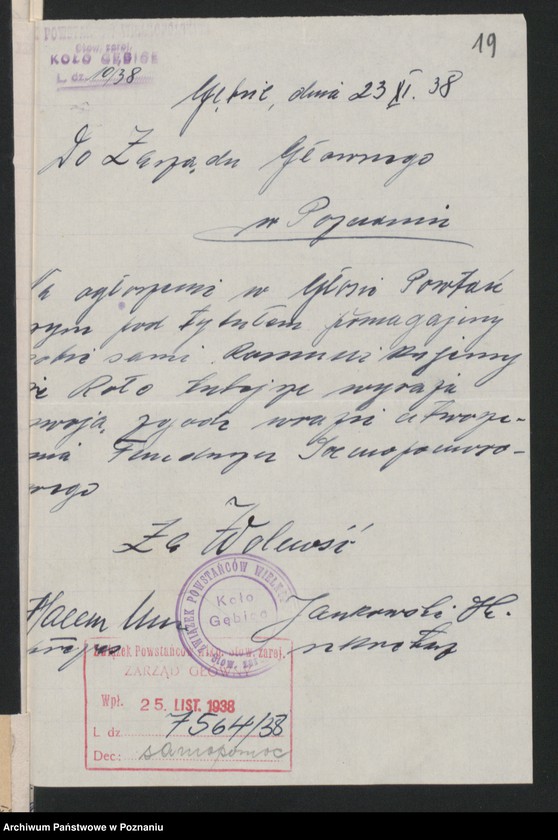 19
Stow. zarej.
KOŁO GĘBICE
L. dz. 10/38
Gębice, dnia 23 XI. 38
Do Zarządu Głownego
w Poznaniu
ogłoszenie w Głosie Powstań
pod tytułem pomagajmy
sami. Komunikujemy
Koło tutejsze wyraża
zgodę wrazie utworze-
nia Funduszu Samopomoco-
wego
Za Wolność
Jankowski St.
sekretarz
ZWIĄZEK POWSTAŃCÓW WIELKP.
Koło
Gębice
Stow. zar.
Związek Powstańców Wlkp. stow. zarej.
ZARZĄD GŁÓWNY
Wpł. 25 LIST. 1938
L. dz 7564/38
Dec: samopomoc
Archiwum Państwowe w Poznaniu